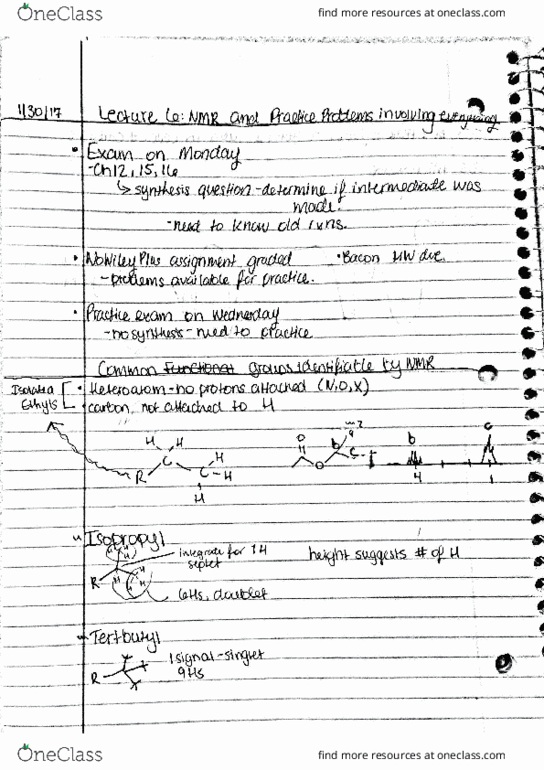 OneClass
find more resources at oneclass.com
1/30/17 Lecture 6: NMR and Practice Problems involving everything
• Exam on Monday
-Ch12, 15, 16
↳ synthesis question - determine if intermediate was
made.
-need to know old rxns.
• No Wiley Plus assignment graded • Bacon HW due
- problems available for practice.
• Practice exam on Wednesday
- no synthesis - need to practice
Common Functional groups identifiable by NMR
Isolated Ethyls
• Heteroatom - no protons attached (N, O, X)
• carbon, not attached to H
H H
R C C H
H
H
O
O
a
b
c
b
c
4
1
Isopropyl
integrate for 1H
septet
height suggests # of H
R
H
6Hs, doublet
Tertbutyl
1 signal - singlet
9Hs
R
OneClass
find more resources at oneclass.com